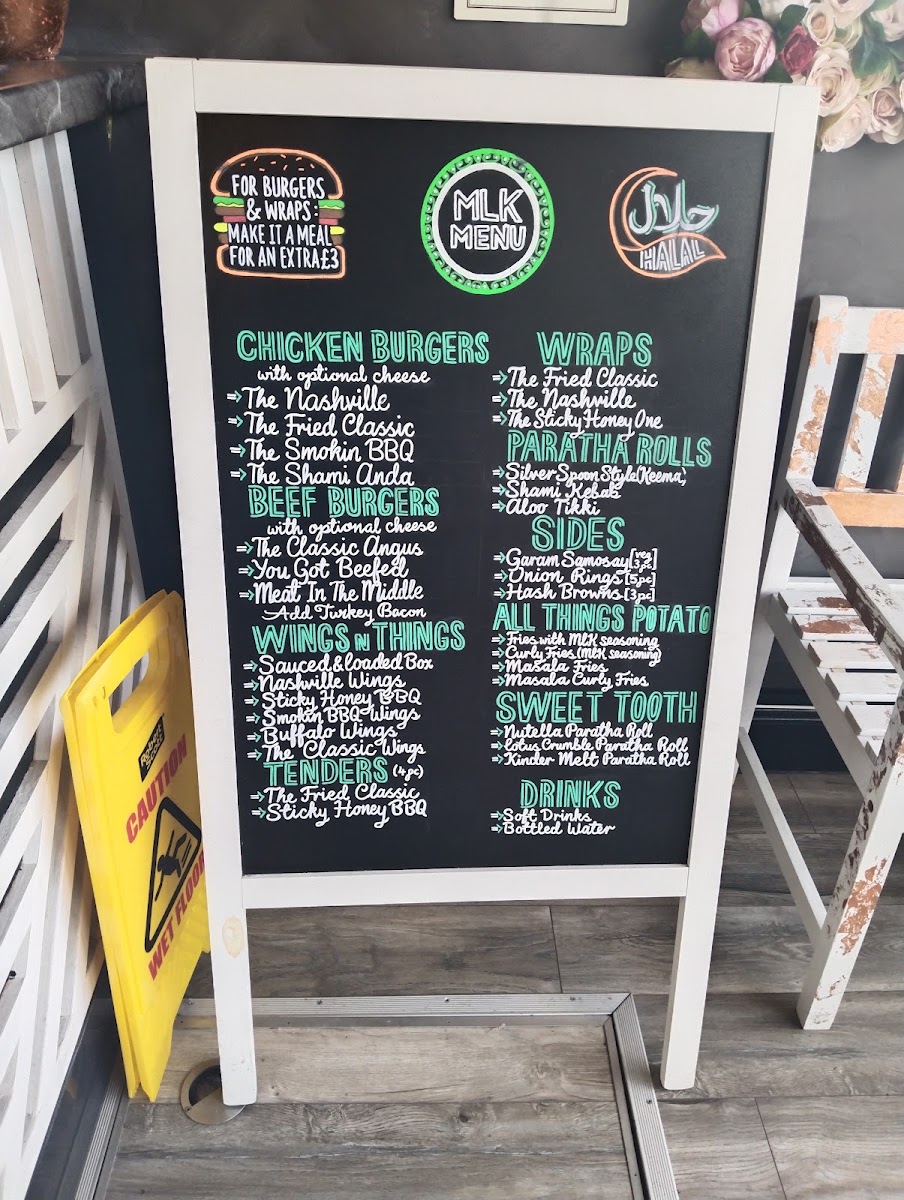 FOR BURGERS
& WRAPS:
MAKE IT A MEAL
FOR AN EXTRA £3
MLK
MENU
حلال
HALAL
CHICKEN BURGERS
with optional cheese
⇒The Nashville
⇒The Fried Classic
⇒The Smokin BBQ
⇒The Shami Anda
BEEF BURGERS
with optional cheese
⇒The Classic Angus
⇒You Got Beefed
⇒Meat In The Middle
Add Turkey Bacon
WINGS N THINGS
⇒Sauced & Loaded Box
⇒Nashville Wings
⇒Sticky Honey BBQ
⇒Smokin BBQ Wings
⇒Buffalo Wings
⇒The Classic Wings
TENDERS (4pc)
⇒The Fried Classic
⇒Sticky Honey BBQ
WRAPS
⇒The Fried Classic
⇒The Nashville
⇒The Sticky Honey One
PARATHA ROLLS
⇒Silver Spoon Style (Keema)
⇒Shami Kebab
⇒Aloo Tikki
SIDES
⇒Garam Samosay [veg 3pc]
⇒Onion Rings [5pc]
⇒Hash Browns [3pc]
ALL THINGS POTATO
⇒Fries with MLK seasoning
⇒Curly Fries (MLK seasoning)
⇒Masala Fries
⇒Masala Curly Fries
SWEET TOOTH
⇒Nutella Paratha Roll
⇒Lotus Crumble Paratha Roll
⇒Kinder Melt Paratha Roll
DRINKS
⇒Soft Drinks
⇒Bottled Water
CAUTION
WET FLOOR